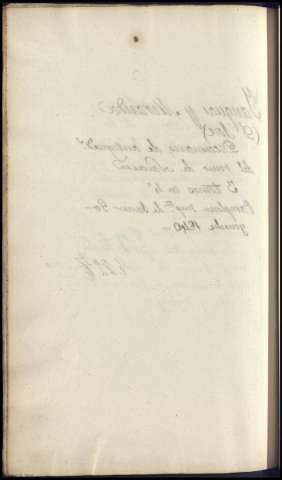 Yanguas y Miranda
(D. José)
Diccionario de antigüeds
del reino de Navarra
3 tomos en 4º
Pamplona impta de Javier Go-
yeneche 1840-